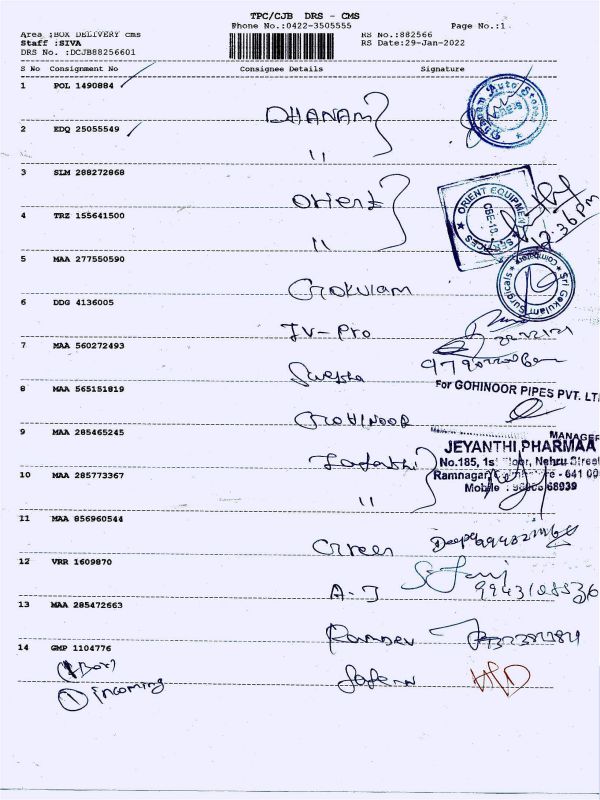 TPC/CJB DRS - CMS
Phone No.:0422-3505555
Page No.:1
Area :BOX DELIVERY cms
Staff :SIVA
DRS No. :DCJB88256601
RS No.:882566
RS Date:29-Jan-2022
S No Consignment No Consignee Details Signature
1 POL 1490884
DHANAM
Dhanam Auto Stores
CBE-9
2 EDQ 25055549
"
3 SLM 288272868
orient
ORIENT EQUIPMENT SERVICES
4 TRZ 155641500
"
12.36 Pm
5 MAA 277550590
Gokulam
Sri Gokulam Surgicals
6 DDG 4136005
TV-Pro
7 MAA 560272493
8 MAA 565151819
For GOHINOOR PIPES PVT. LT
GOHINOOR
MANAGER
9 MAA 285465245
JEYANTHI PHARMAA
No.185, 1st Floor, Nehru Street
Ramnagar, - 641 00
Mobile : 68939
10 MAA 285773367
"
11 MAA 856960544
Green
Deepa
12 VRR 1609870
A-J
13 MAA 285472663
Ramdev
14 GMP 1104776
1 Box
Incoming